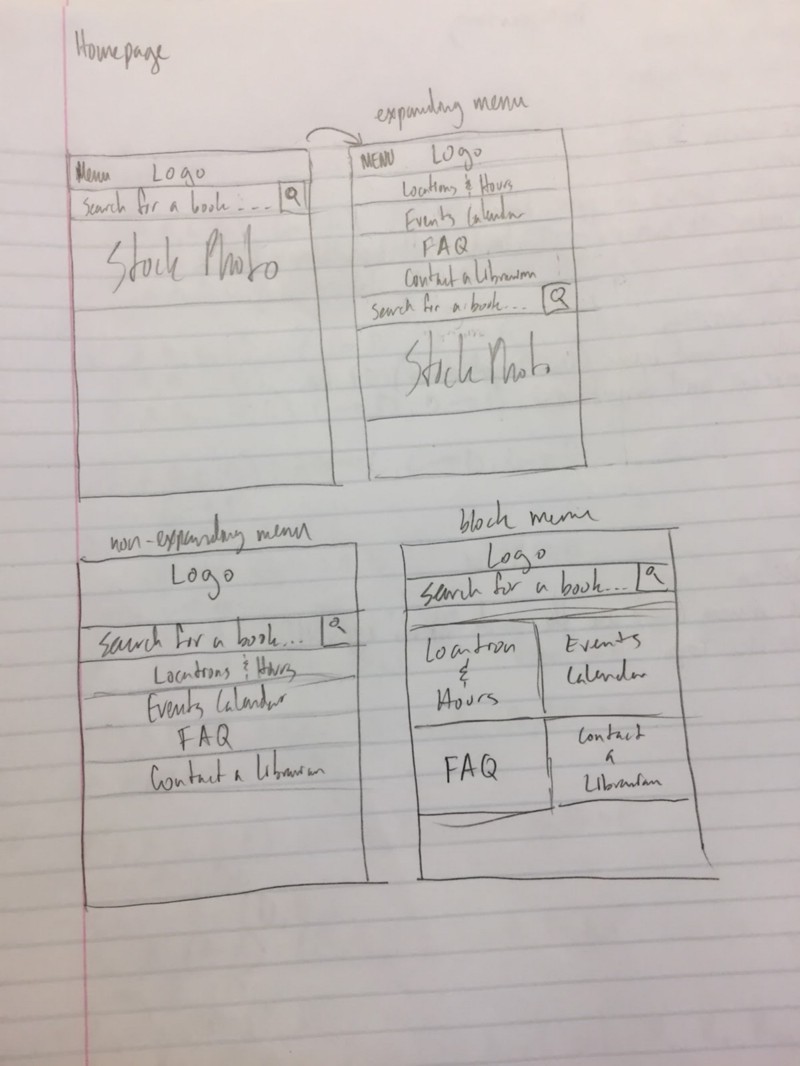 Homepage
expanding menu
Menu Logo
Search for a book ...
Stock Photo
MENU Logo
Locations & Hours
Events Calendar
FAQ
Contact a Librarian
Search for a book...
Stock Photo
non-expanding menu
Logo
Search for a book...
Locations & Hours
Events Calendar
FAQ
Contact a Librarian
block menu
Logo
Search for a book...
Location
&
Hours
Events
Calendar
FAQ
Contact
a
Librarian